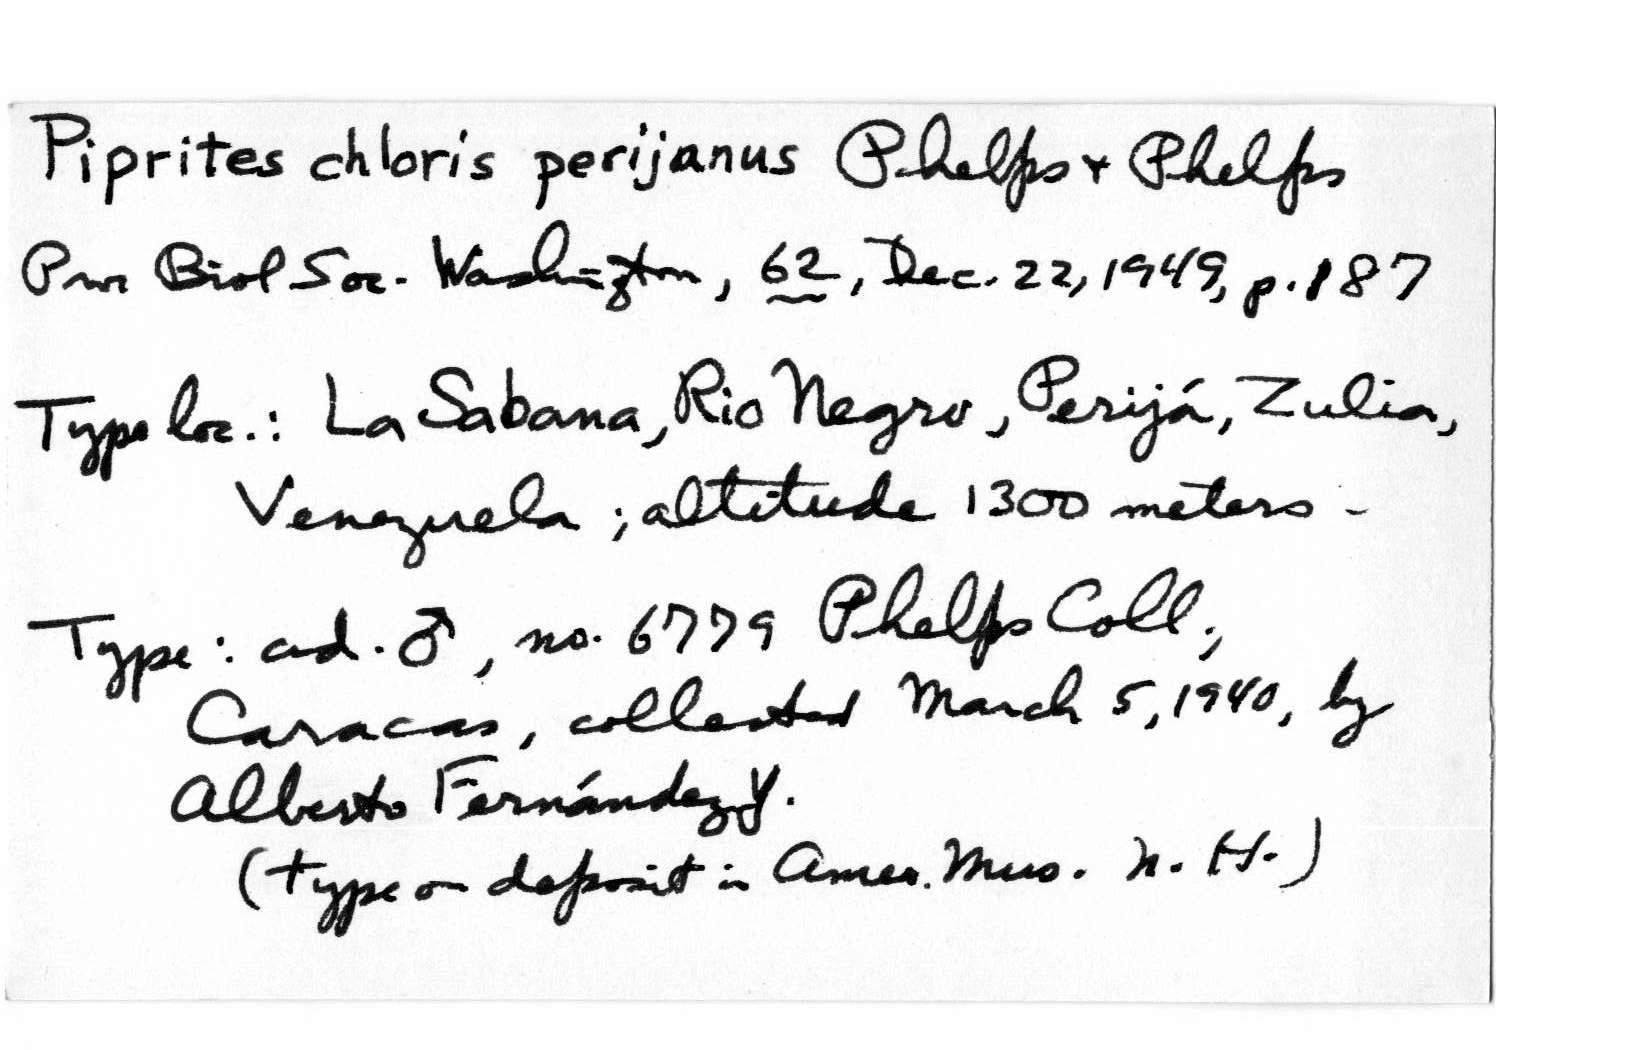 Piprites chloris perijanus Phelps & Phelps
Proc Biol Soc. Washington, 62, Dec. 22, 1949, p. 187
Type loc.: La Sabana, Rio Negro, Perijá, Zulia,
Venezuela; altitude 1300 meters -
Type: ad. ♂, no. 6779 Phelps Coll.,
Caracas, collected March 5, 1940, by
Alberto Fernández Y.
(type on deposit in Amer. Mus. N. H.)